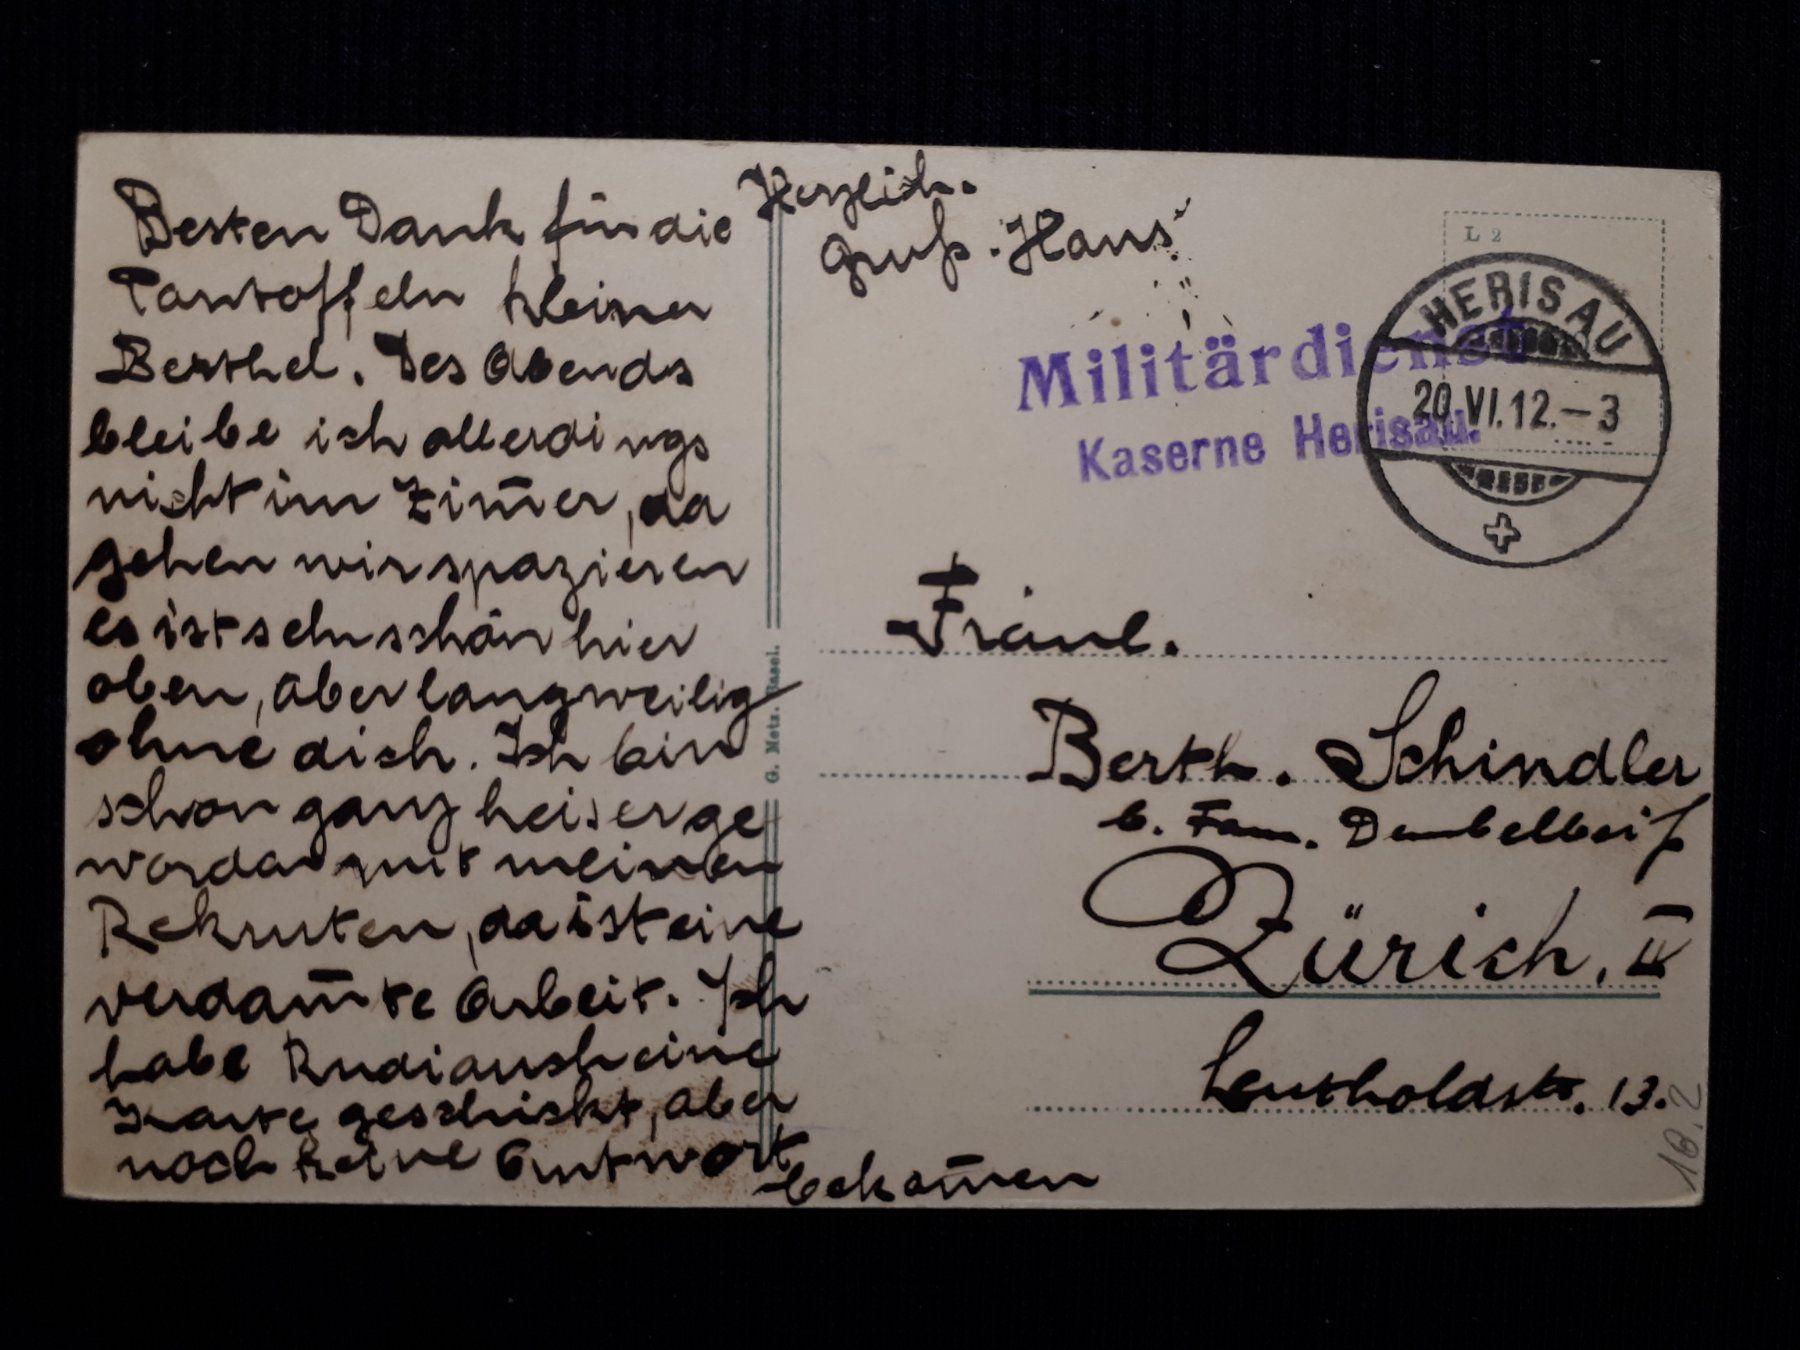 Besten Dank für die
Pantoffeln kleiner
Berthel. Des Abends
bleibe ich allerdings
nicht im Zim̄er, da
gehen wir spazieren
es ist sehr schön hier
oben, aber langweilig
ohne dich. Ich bin
schon ganz heiser ge
worden mit meinen
Rekruten, da ist eine
verdam̄te Arbeit. Ich
habe Rudi auch eine
Karte geschickt, aber
noch keine Antwort
bekom̄en
Herzlich.
Gruß. Hans.
G. Metz. Basel.
L 2
HERISAU
20.VI.12.–3
Militärdienst
Kaserne Herisau.
Fräul.
Berth. Schindler
b. Fam.
Zürich, II
Leutholdstr. 13.